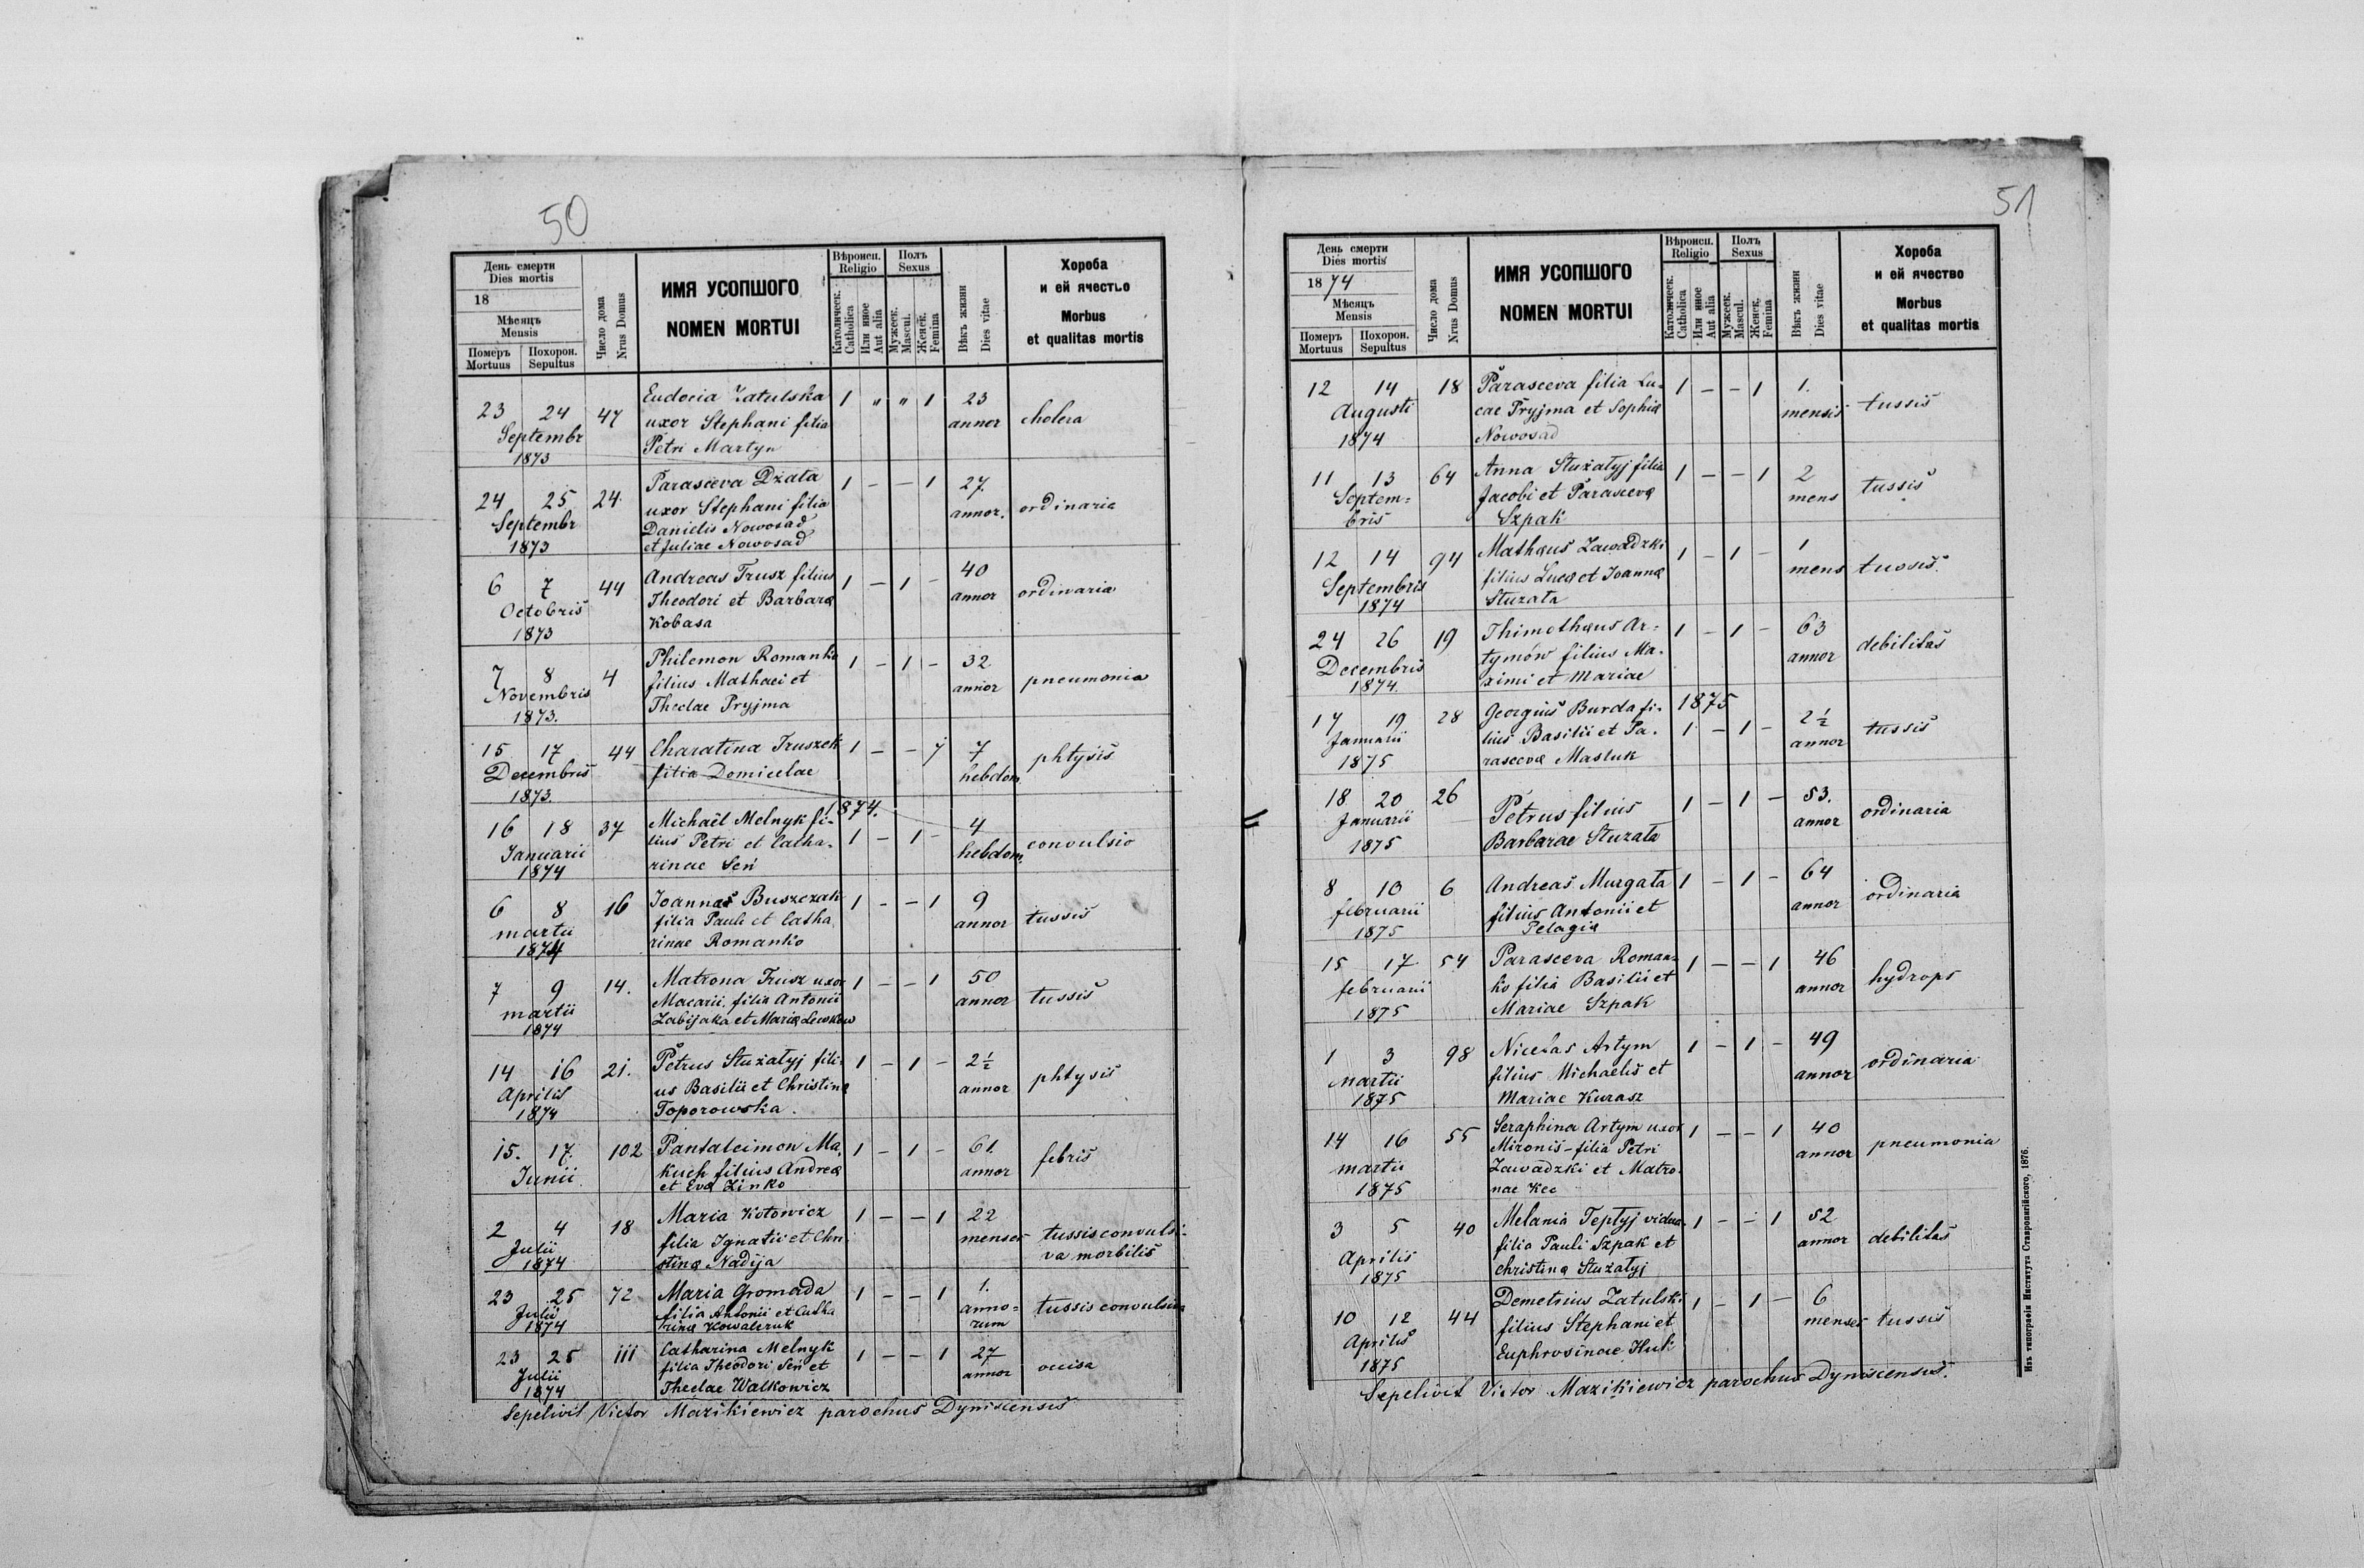 50
День смерти
Dies mortis
18
Мѣсяцъ
Mensis
Померъ
Mortuus
Похорон.
Sepultus
Число дома
Nrus Domus
ИМЯ УСОПШОГО
NOMEN MORTUI
Вѣроисп.
Religio
Католическ.
Catholica
Или иное
Aut alia
Полъ
Sexus
Мужеск.
Mascul.
Женск.
Femina
Вѣкъ жизни
Dies vitae
Хороба
и ей ячество
Morbus
et qualitas mortis
23 24 47 Eudocia Zatulska 1 " " 1 23 cholera
Septembr uxor Stephani filia annor
1873 Petri Martyn
24 25 24. Parasceva Dżała 1 - - 1 27. ordinaria
Septembr uxor Stephani filia annor.
1873 Danielis Nowosad
et Juliae Nowosad
6 7 44 Andreas Trusz filius 1 - 1 - 40 ordinaria
Octobris Theodori et Barbarae annor
1873 Kobasa
7 8 4 Philemon Romanko 1 - 1 - 32 pneumonia
Novembris filius Mathaei et annor
1873. Theclae Pryjma
15 17 44 Charatina Truszek 1 - - j 7 phtysis
Decembris filia Domicelae hebdom.
1873.
1874.
16 18 37 Michaël Melnyk fi- 1 - 1 - 4 convulsio
Januarii lius Petri et Catha- hebdom.
1874 rinae Seń
6 8 16 Joannas Buszczak 1 - - 1 9 tussis
martii filia Pauli et Catha annor
1874 rinae Romanko
7 9 14. Matrona Trusz uxor 1 - - 1 50 tussis
martii Macarii, filia Antonii annor
1874 Zabijaka et Mariae Lewkow
14 16 21. Petrus Stużatyj fili- 1 - 1 - 2½ phtysis
Aprilis us Basilii et Christinae annor
1874 Toporowska.
15. 17. 102 Pantaleimon Ma- 1 - 1 - 61. febris
Junii kuch filius Andreae annor
et Evae Zinko
2 4 18 Maria Kotowicz 1 - - 1 22 tussis convulsi-
Julii filia Ignatii et Chri menses va morbilis
1874 stinae Nadija
23 25 72 Maria Gromada 1 - - 1 1. tussis convulsiva
Julii filia Antonii et Catha anno-
1874 rinae Kowalczuk rum
23 25 111 Catharina Melnyk 1 - - 1 27 occisa
Julii filia Theodori Seń et annor
1874 Theclae Walkowicz
Sepelivit Victor Mazikiewicz parochus Dyniscensis
51
День смерти
Dies mortis
1874
Мѣсяцъ
Mensis
Померъ
Mortuus
Похорон.
Sepultus
Число дома
Nrus Domus
ИМЯ УСОПШОГО
NOMEN MORTUI
Вѣроисп.
Religio
Католическ.
Catholica
Или иное
Aut alia
Полъ
Sexus
Мужеск.
Mascul.
Женск.
Femina
Вѣкъ жизни
Dies vitae
Хороба
и ей ячество
Morbus
et qualitas mortis
12 14 18 Parasceva filia Lu- 1 - - 1 1. tussis
Augusti cae Pryjma et Sophiae mensis
1874 Nowosad
11 13 64 Anna Stużatyj filia 1 - - 1 2 tussis
Septem- Jacobi et Parascevae mens
bris Szpak
12 14 94 Mathaeus Zawadzki 1 - 1 - 1 tussis.
Septembris filius Lucae et Joannae mens
1874 Stuzata
24 26 19 Thimothaeus Ar- 1 - 1 - 63 debilitas
Decembris tymów filius Ma- annor
1874. ximi et Mariae
1875
17 19 28 Georgius Burda fi- 1 - 1 - 2½ tussis
Januarii lius Basilii et Pa- annor
1875 rascevae Masluk
18 20 26 Petrus filius 1 - 1 - 53. ordinaria
Januarii Barbarae Stuzata annor
1875
8 10 6 Andreas Murgała 1 - 1 - 64 ordinaria
februarii filius Antonii et annor
1875 Pelagiae
15 17 54 Parasceva Roman- 1 - - 1 46 hydrops
februarii ko filia Basilii et annor
1875 Mariae Szpak
1 3 98 Nicetas Artym 1 - 1 - 49 ordinaria
martii filius Michaelis et annor
1875 Mariae Kurasz
14 16 55 Seraphina Artym uxor 1 - - 1 40 pneumonia
martii Mironis - filia Petri annor
1875 Zawadzki et Matro-
nae Kec
3 5 40 Melania Teptyj vidua 1 - - 1 52 debilitas
Aprilis filia Pauli Szpak et annor
1875 Christinae Stużatyj
10 12 44 Demetrius Zatulski 1 - 1 - 6 tussis
Aprilis filius Stephani et menses
1875 Euphrosinae Huk
Sepelivit Victor Mazikiewicz parochus Dyniscensis.
Изъ типографіи Института Ставропигійского, 1876.